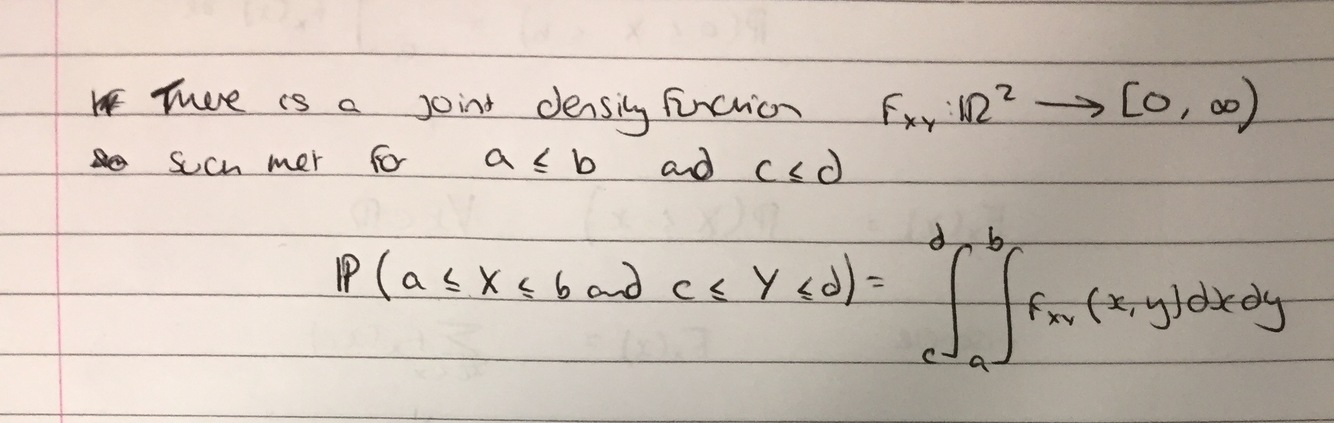 There is a joint density function f_XY : ℝ² → [0, ∞)
such that for a ≤ b and c ≤ d
ℙ(a ≤ X ≤ b and c ≤ Y ≤ d) = ∫_c^d ∫_a^b f_XY (x, y) dx dy